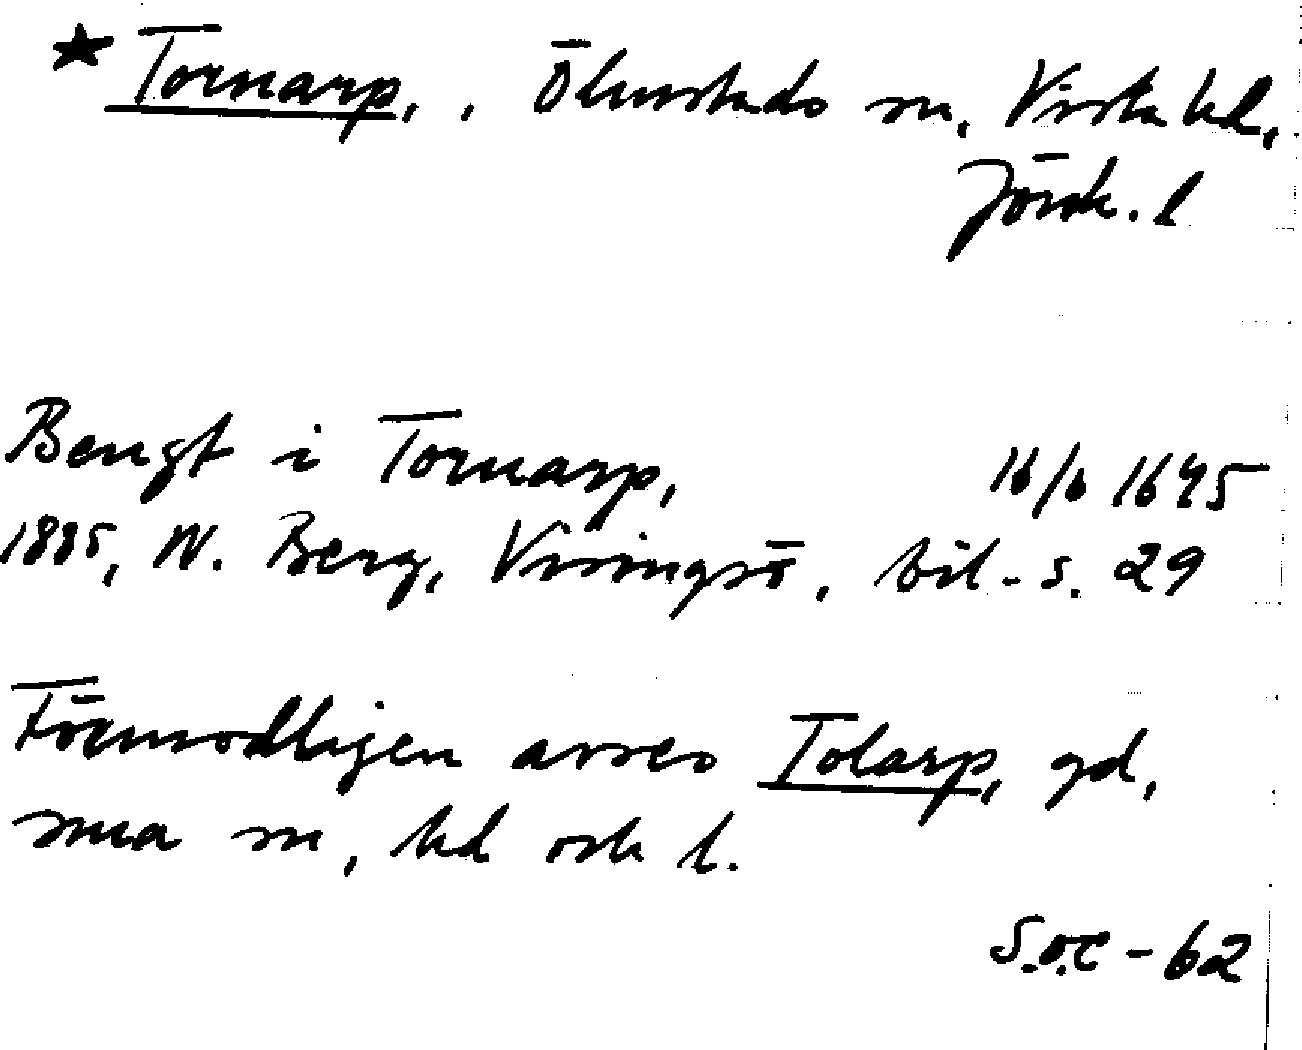 ★ Tornarp, , Ölmstads sn, Vista hd,
Jönk. l
Bengt i Tornarp, 16/6 1645
1885, W. Berg, Visingsö, bil. s. 29
Förmodligen avses Tolarp, gd,
sma sn, hd och l.
S.O.C - 62